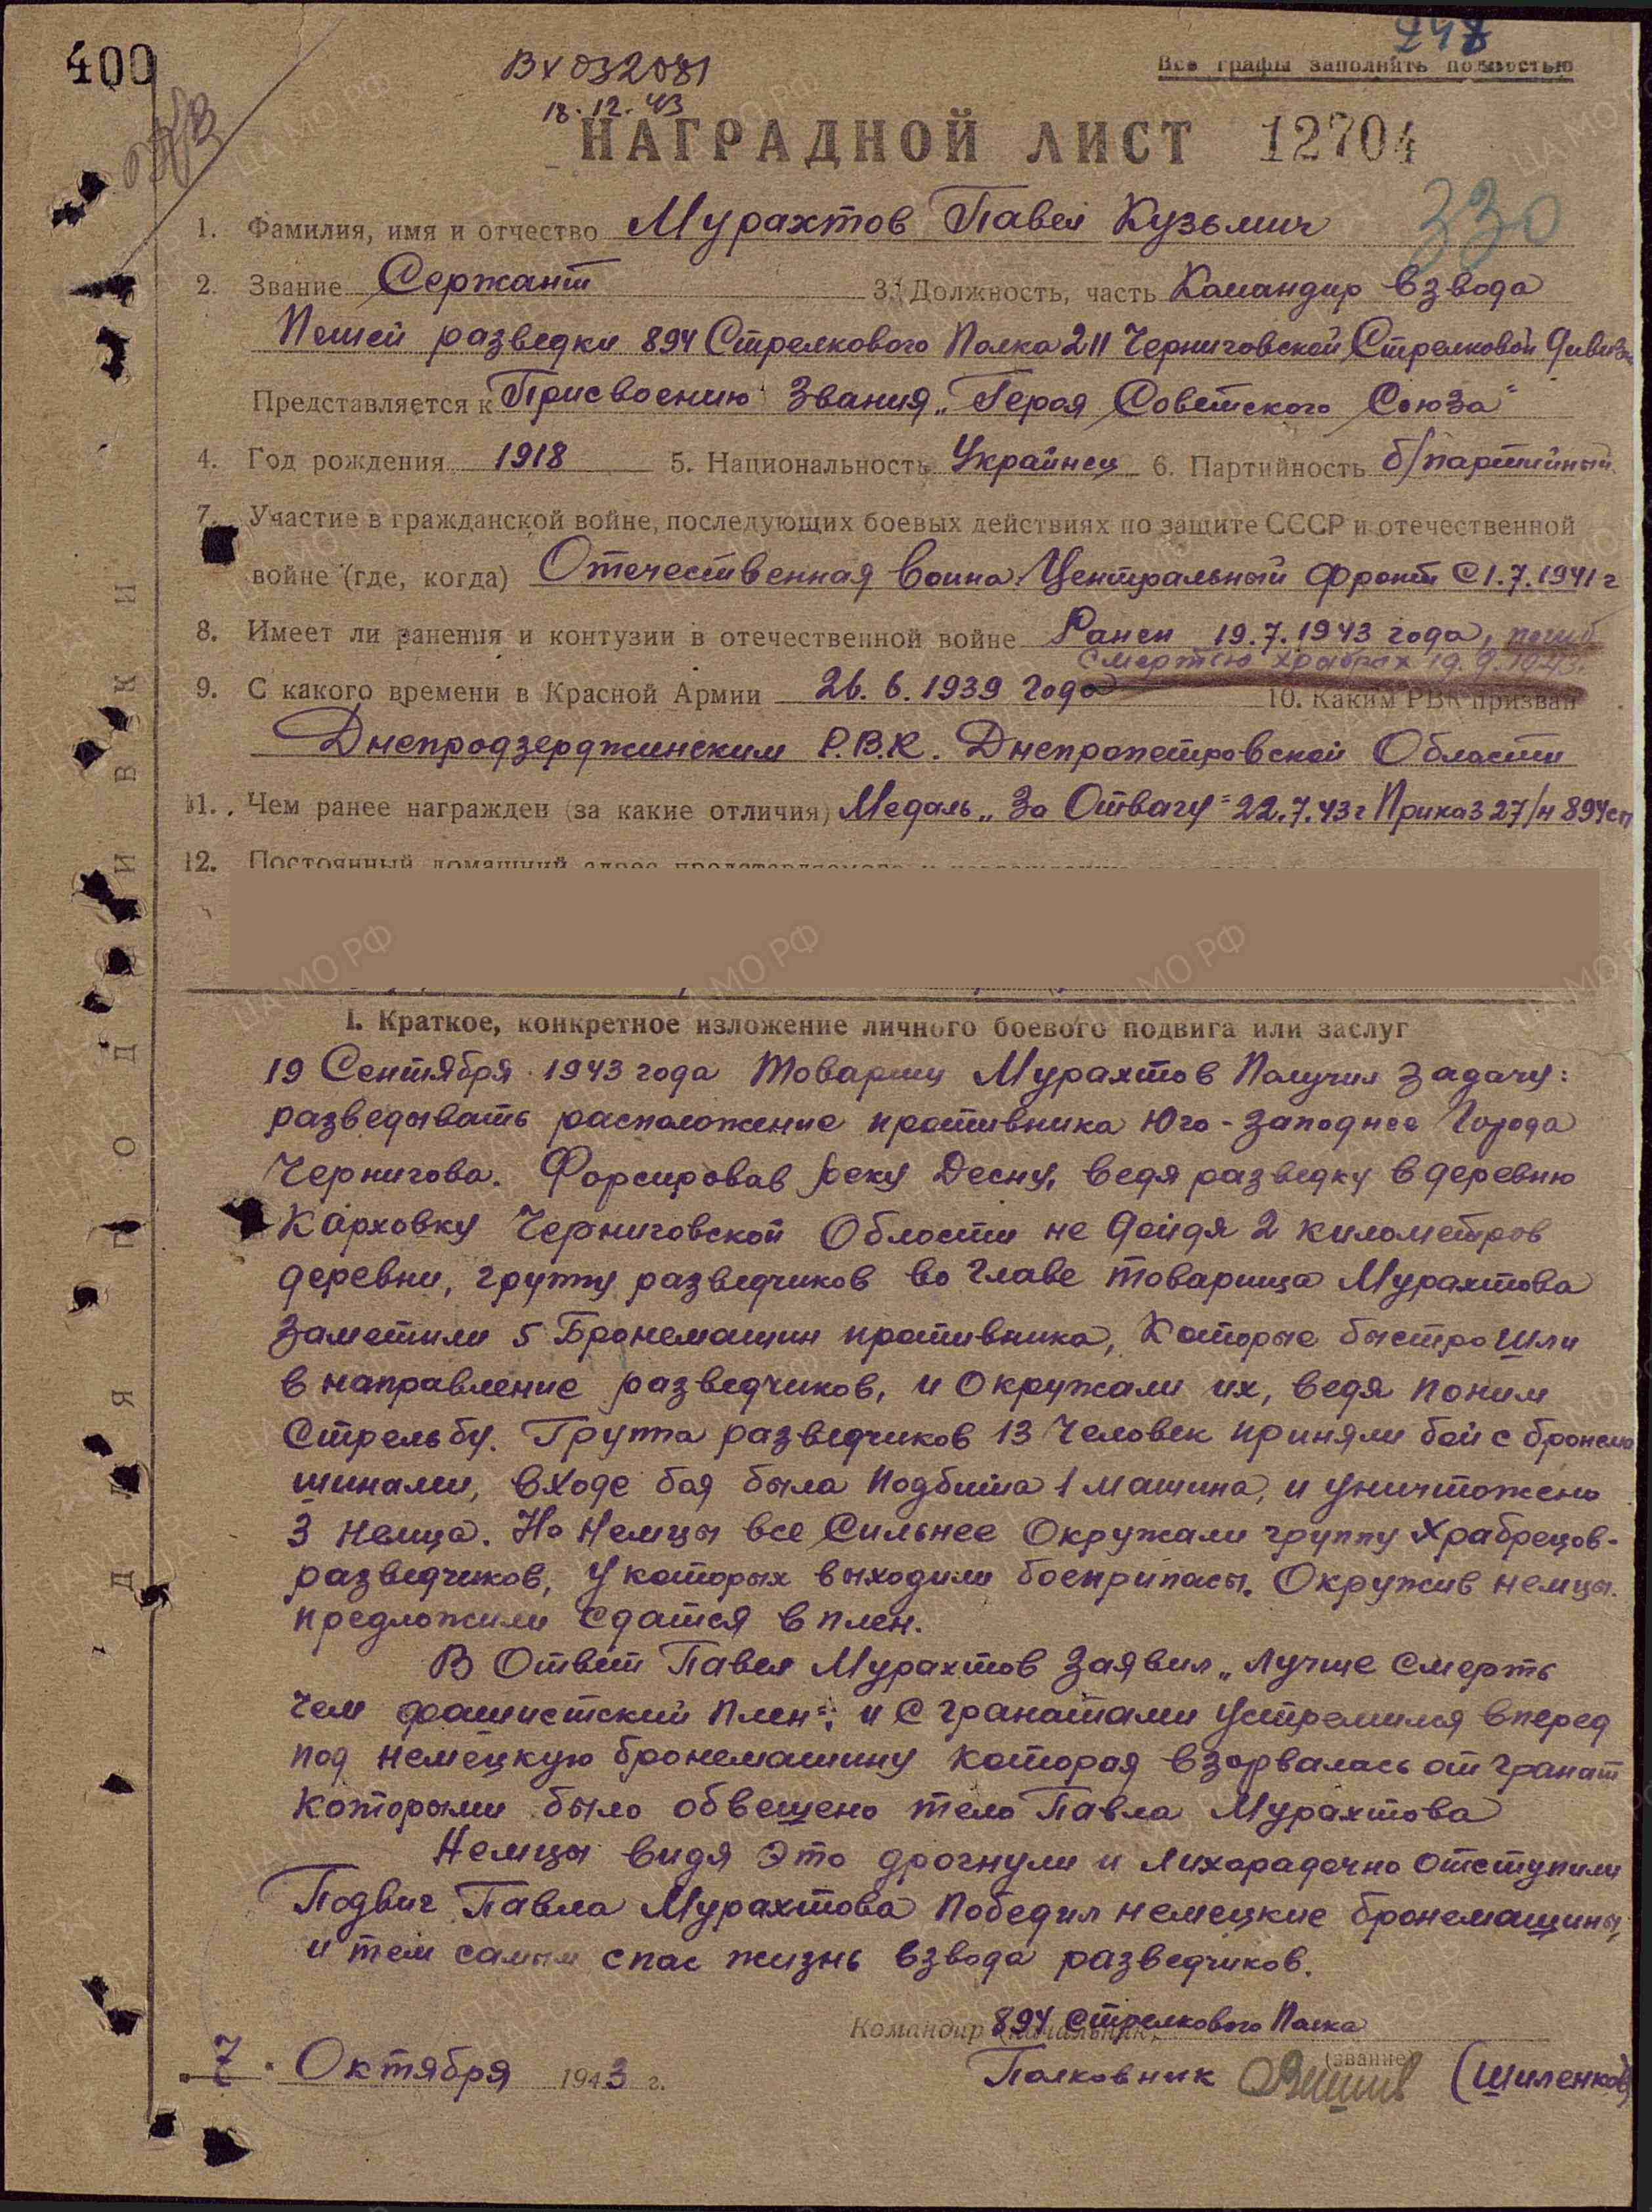 400
Вх 032081
18.12.43
Все графы заполнять полностью
НАГРАДНОЙ ЛИСТ 12704
330
1. Фамилия, имя и отчество Мурахтов Павел Кузьмич
2. Звание Сержант 3. Должность, часть Командир взвода
Пешей разведки 894 Стрелкового Полка 211 Черниговской Стрелковой Дивизи
Представляется к Присвоению Звания „Героя Советского Союза"
4. Год рождения 1918 5. Национальность Украинец 6. Партийность б/партийный
7. Участие в гражданской войне, последующих боевых действиях по защите СССР и отечественной
войне (где, когда) Отечественная воина Центральный фронт С 1.7.1941 г
8. Имеет ли ранения и контузии в отечественной войне Ранен 19.7.1943 года, погиб
смертью храбрах 19.9.1943.
9. С какого времени в Красной Армии 26.6.1939 года 10. Каким РВК призван
Днепродзерджинским Р.В.К. Днепропетровской Области
11. Чем ранее награжден (за какие отличия) Медаль „За Отвагу" 22.7.43 г Приказ 27/н 894 сп
12. Постоянный домашний адрес представляемого к
I. Краткое, конкретное изложение личного боевого подвига или заслуг
19 Сентября 1943 года Товарищ Мурахтов Получил Задачу:
разведывать расположение противника Юго-Западнее Города
Чернигова. Форсировав реку Десну, ведя разведку в деревню
Карховку Черниговской Области не дойдя 2 километров
деревни, группу разведчиков во Главе товарища Мурахтова
Заметили 5 Бронемашин противника, Которые быстро шли
в направление разведчиков, и Окружали их, ведя поним
Стрельбу. Группа разведчиков 13 Человек приняли бой с бронема
шинами, входе боя была Подбита 1 машина, и уничтожено
3 немца. Но Немцы все Сильнее Окружали группу Храбрецов-
разведчиков, у которых выходили боеприпасы. Окружив немцы
предложили сдатся в плен.
В Ответ Павел Мурахтов Заявил „Лучше смерть
чем фашистский Плен", и С гранатами устремился вперед
под немецкую бронемашину которая взорвалась от гранат
Которыми было обвешено тело Павла Мурахтова
Немцы видя Это дрогнули и лихорадочно отступили
Подвиг Павла Мурахтова Победил немецкие бронемашины,
и тем самым спас жизнь взвода разведчиков.
Командир (начальник) 894 Стрелкового Полка
7 Октября 1943 г.
(звание)
Полковник (Шиленков)
ДЛЯ ПОДШИВКИ
ЦАМО РФ